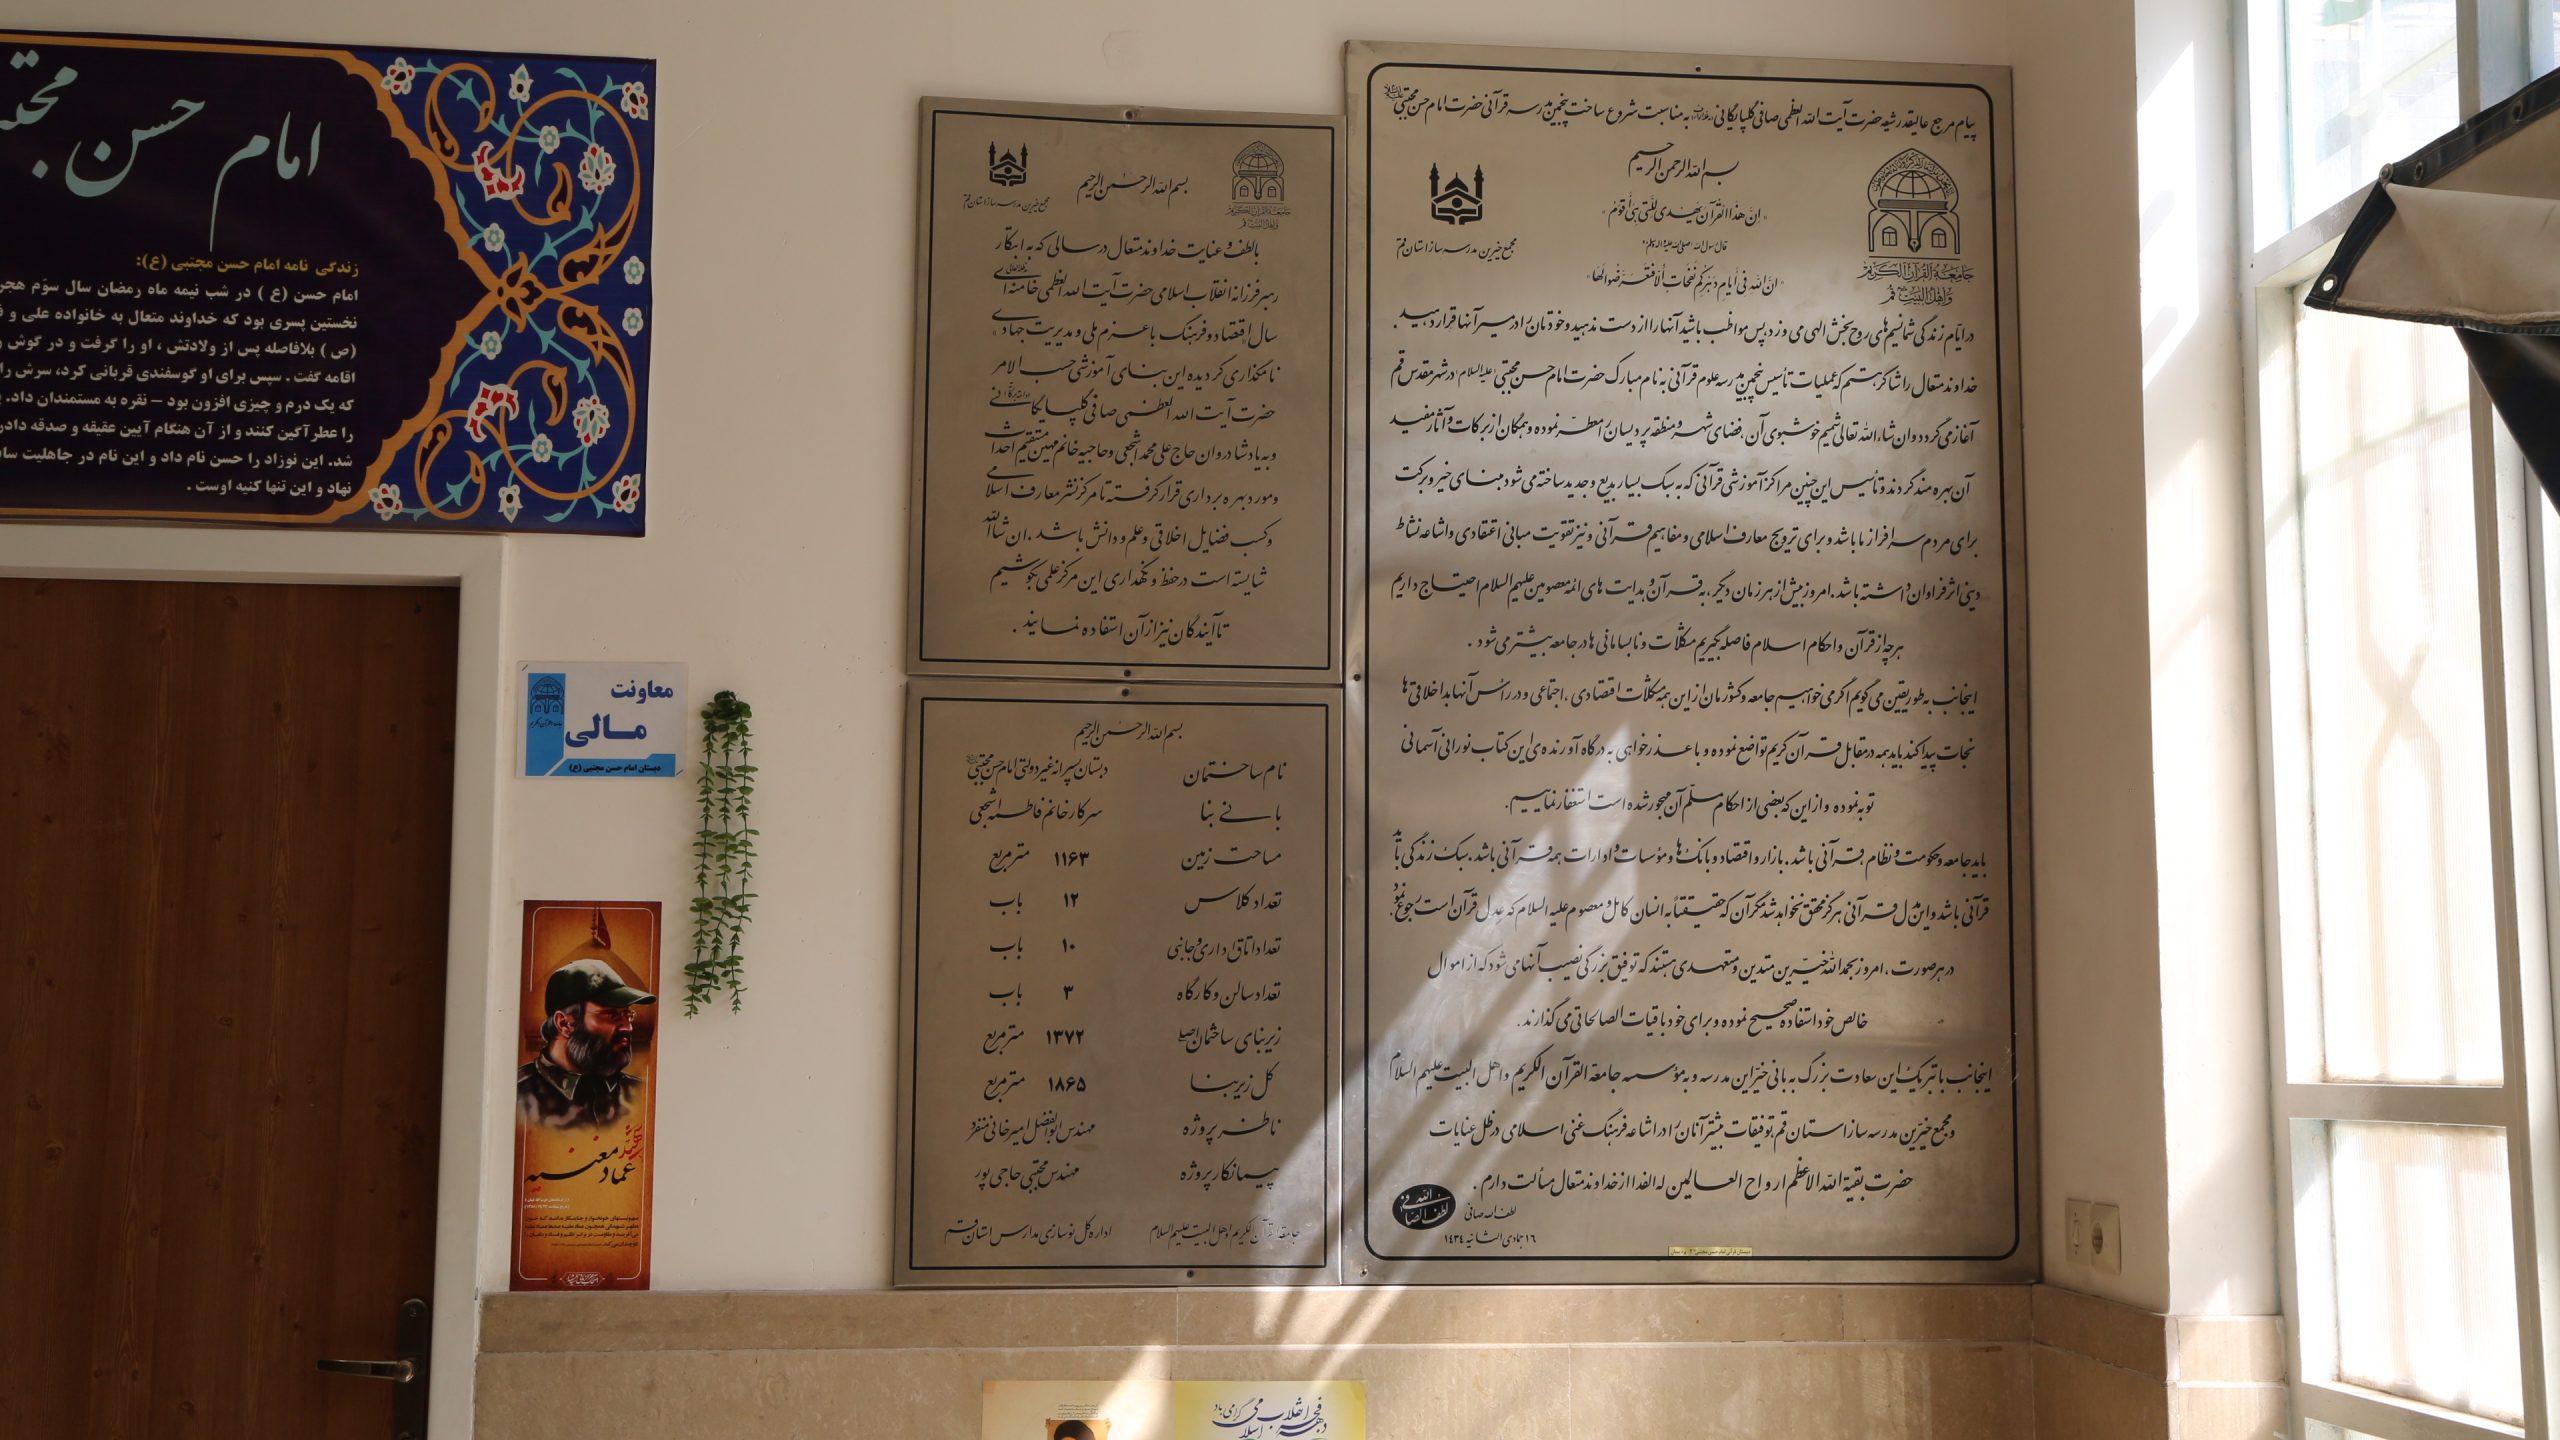 پیام مرجع عالیقدر شیعه حضرت آیت الله العظمی صافی گلپایگانی به مناسبت شروع ساخت پنجمین مدرسه قرآنی حضرت امام حسن مجتبی علیه السلام
بسم الله الرحمن الرحیم
« إنّ هذا القرآن یهدی للّتی هی أقوم »
قال رسول الله صلی الله علیه و آله وسلم:
« انّ لله فی أیام دهرکم نفحات ألا فتعرّضوا لها »
مجمع خیرین مدرسه ساز استان قم
جامعة القرآن الکریم
و اهل البیت قم
در ایّام زندگی شما نسیم های روح بخش الهی می وزد، پس مواظب باشید آنها را از دست ندهید و خودتان را در مسیر آنها قرار دهید.
خداوند متعال را شاکر هستم که عملیات تأسیس پنجمین مدرسه علوم قرآنی به نام مبارک حضرت امام حسن مجتبی علیه السلام در شهر مقدس قم
آغاز می گردد و ان شاء الله تعالی شمیم خوشبوی آن، فضای شهر و منطقه پردیسان را معطّر نموده و همگان از برکات و آثار مفید
آن بهره مند گردند و تأسیس این چنین مراکز آموزشی قرآنی که به سبک بسیار بدیع و جدید ساخته می شود مبنای خیر و برکت
برای مردم سرافراز ما باشد و برای ترویج معارف اسلامی و مفاهیم قرآنی و نیز تقویت مبانی اعتقادی و اشاعه نشاط
دینی اثر فراوان داشته باشد. امروز بیش از هر زمان دیگر، به قرآن و هدایت های ائمه معصومین علیهم السلام احتیاج داریم
هر چه از قرآن و احکام اسلام فاصله بگیریم مشکلات و نابسامانی ها در جامعه بیشتر می شود.
اینجانب به طور یقین می گویم اگر می خواهیم جامعه و کشورمان از این همه مشکلات اقتصادی، اجتماعی و در رأس آنها بداخلاقی ها
نجات پیدا کند باید همه در مقابل قرآن کریم تواضع نموده و با عذرخواهی به درگاه آورنده ی این کتاب نورانی آسمانی
توبه نموده و از این که بعضی از احکام مسلّم آن مهجور شده است استغفار نماییم.
باید جامعه و حکومت و نظام، قرآنی باشد. بازار و اقتصاد و بانک ها و مؤسسات و ادارات همه قرآنی باشد. سبک زندگی باید
قرآنی باشد و این مدل قرآنی هرگز محقق نخواهد شد مگر آن که حقیقتاً به انسان کامل و معصوم علیه السلام که عِدل قرآن است رجوع نمود.
در هر صورت، امروز بحمدالله خیّرین متدین و متعهدی هستند که توفیق بزرگی نصیب آنها می شود که از اموال
خالص خود استفاده صحیح نموده و برای خود باقیات الصالحاتی می گذارند.
اینجانب با تبریک این سعادت بزرگ به بانی خیّر این مدرسه و به مؤسسه جامعة القرآن الکریم و اهل البیت علیهم السلام
و مجمع خیّرین مدرسه ساز استان قم، توفیقات بیشتر آنان را در اشاعه فرهنگ غنی اسلامی در ظل عنایات
حضرت بقیة الله الاعظم ارواح العالمین له الفدا از خداوند متعال مسألت دارم.
لطف الله صافی
۱۶ جمادی الثانیه ۱۴۳۴
لطف الله الصافی
بسم الله الرحمن الرحیم
جامعة القرآن الکریم
و اهل البیت قم
مجمع خیرین مدرسه ساز استان قم
با لطف و عنایت خداوند متعال در سالی که به ابتکار
رهبر فرزانه انقلاب اسلامی حضرت آیت الله العظمی خامنه ای
سال «اقتصاد و فرهنگ با عزم ملی و مدیریت جهادی»
نامگذاری گردیده این بنای آموزشی حسب الامر
حضرت آیت الله العظمی صافی گلپایگانی
و به یاد شادروان حاج علی محمد اشجعی و حاجیه خانم مهین مستقیم احداث
و مورد بهره برداری قرار گرفته تا مرکز نشر معارف اسلامی
و کسب فضایل اخلاقی و علم و دانش باشد. ان شاالله
شایسته است در حفظ و نگهداری این مرکز علمی بکوشیم
تا آیندگان نیز از آن استفاده نمایند.
بسم الله الرحمن الرحیم
نام ساختمان دبستان پسرانه غیر دولتی امام حسن مجتبی
بانی بنا سرکار خانم فاطمه اشجعی
مساحت زمین ۱۱۶۳ مترمربع
تعداد کلاس ۱۲ باب
تعداد اتاق اداری و جانبی ۱۰ باب
تعداد سالن و کارگاه ۳ باب
زیربنای ساختمان اصلی ۱۳۷۲ مترمربع
کل زیربنا ۱۸۶۵ مترمربع
ناظر پروژه مهندس ابوالفضل امیرخانی منفرد
پیمانکار پروژه مهندس مجتبی حاجی پور
جامعة القرآن الکریم و اهل البیت علیهم السلام
اداره کل نوسازی مدارس استان قم
امام حسن مجتب
زندگی نامه امام حسن مجتبی (ع):
امام حسن (ع ) در شب نیمه ماه رمضان سال سوّم هجر
نخستین پسری بود که خداوند متعال به خانواده علی و ف
(ص ) بلافاصله پس از ولادتش ، او را گرفت و در گوش
اقامه گفت . سپس برای او گوسفندی قربانی کرد، سرش را
که یک درم و چیزی افزون بود – نقره به مستمندان داد.
را عطرآگین کنند و از آن هنگام آیین عقیقه و صدقه دادن
شد. این نوزاد را حسن نام داد و این نام در جاهلیت ساب
نهاد و این تنها کنیه اوست .
معاونت
مالی
دبستان امام حسن مجتبی (ع)
شهید
عماد مغنیه
دهه فجر انقلاب اسلامی گرامی باد